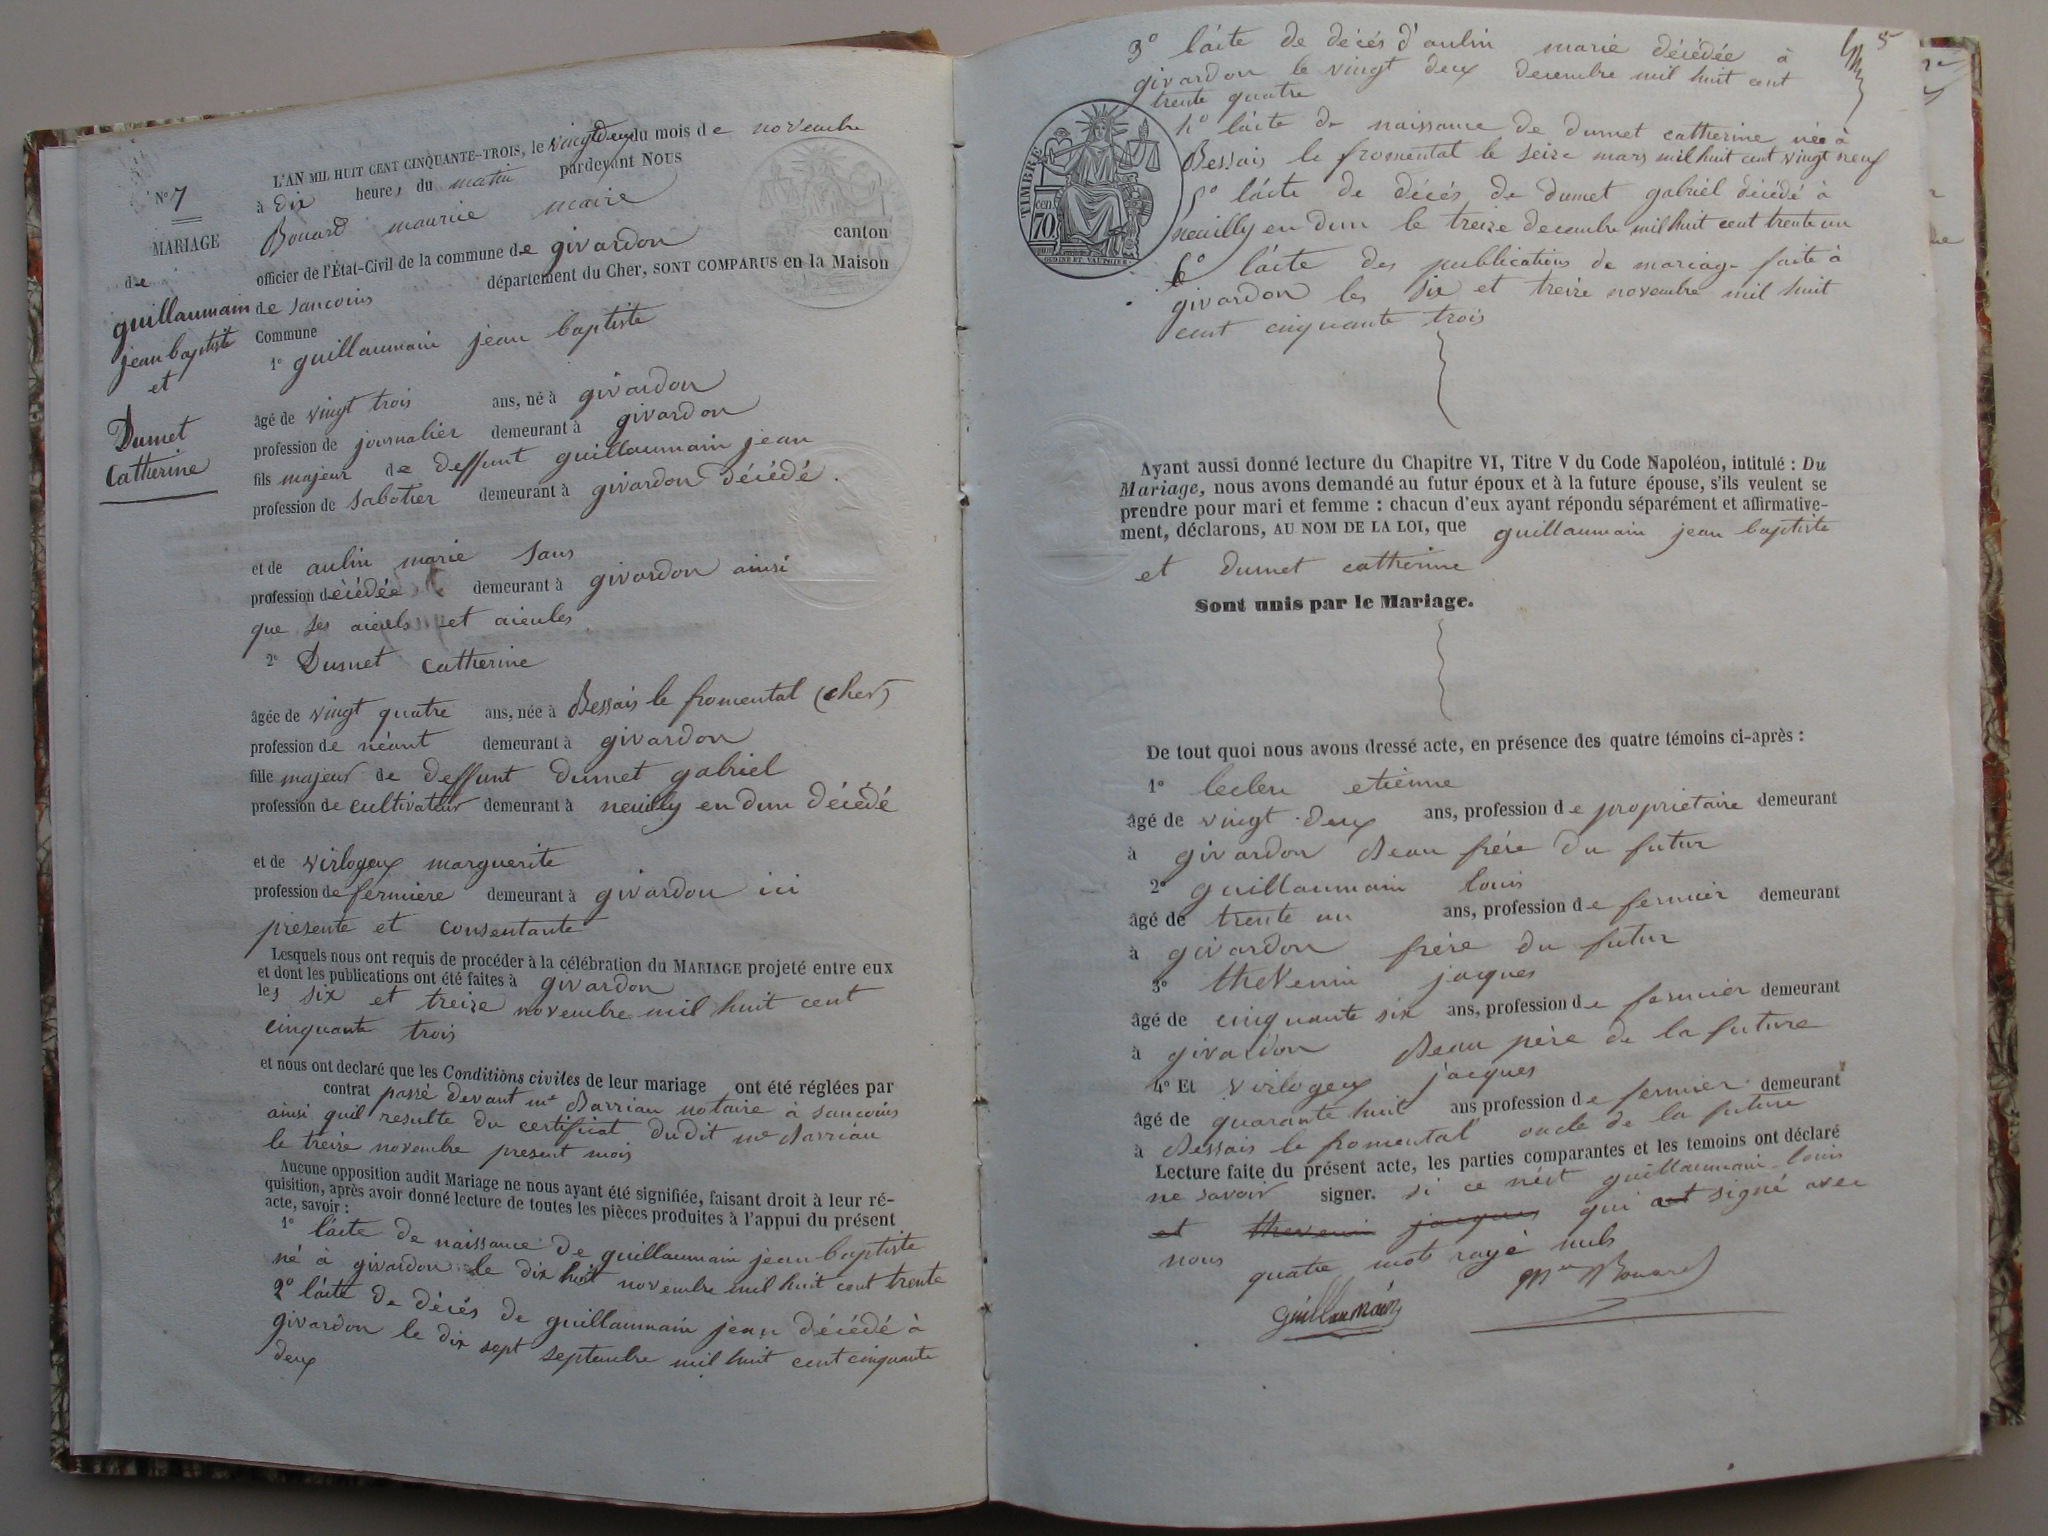 N° 7
MARIAGE
de
guillaumain
jean baptiste
et
Dumet
Catherine
L'AN MIL HUIT CENT CINQUANTE-TROIS, le vingt deux du mois de novembre
à Dix heures du matin pardevant NOUS
Bouard maurice maire
officier de l'État-Civil de la commune de givardon canton
de sancoins département du Cher, SONT COMPARUS en la Maison
Commune
1° guillaumain jean baptiste
âgé de vingt trois ans, né à givardon
profession de journalier demeurant à givardon
fils majeur de deffunt guillaumain jean
profession de sabotier demeurant à givardon décédé.
et de aulin marie sans
profession décédée demeurant à givardon ainsi
que ses aieuls et aieules
2° Dumet catherine
âgée de vingt quatre ans, née à Bessais le fromental (cher)
profession de néant demeurant à givardon
fille majeur de deffunt dumet gabriel
profession de cultivateur demeurant à neuilly en dun décédé
et de virlogeux marguerite
profession de fermiere demeurant à givardon ici
présente et consentante
Lesquels nous ont requis de procéder à la célébration du MARIAGE projeté entre eux
et dont les publications ont été faites à givardon
les six et treize novembre mil huit cent
cinquante trois
et nous ont declaré que les Conditions civiles de leur mariage ont été réglées par
contrat passé devant me Barriau notaire à sancoins
ainsi quil resulte du certificat dudit me Barriau
le treize novembre present mois
Aucune opposition audit Mariage ne nous ayant été signifiée, faisant droit à leur ré-
quisition, après avoir donné lecture de toutes les pièces produites à l'appui du présent
acte, savoir :
1° lacte de naissance de guillaumain jean baptiste
né à givardon le dix huit novembre mil huit cent trente
2° lacte de décés de guillaumain jean décédé à
givardon le dix sept septembre mil huit cent cinquante
deux
5
3° lacte de décés d'aulin marie décédée à
givardon le vingt deux decembre mil huit cent
trente quatre
4° lacte de naissance de dumet catherine née à
Bessais le fromental le seize mars mil huit cent vingt neuf
5° lacte de décés de dumet gabriel décédé à
neuilly en dun le treize decembre mil huit cent trente un
6° lacte des publications de mariage faite à
givardon les six et treize novembre mil huit
cent cinquante trois
TIMBRE
cen
70
Ayant aussi donné lecture du Chapitre VI, Titre V du Code Napoléon, intitulé : Du
Mariage, nous avons demandé au futur époux et à la future épouse, s'ils veulent se
prendre pour mari et femme : chacun d'eux ayant répondu séparément et affirmative-
ment, déclarons, AU NOM DE LA LOI, que guillaumain jean baptiste
et dumet catherine
Sont unis par le Mariage.
De tout quoi nous avons dressé acte, en présence des quatre témoins ci-après :
1° leclerc etienne
âgé de vingt deux ans, profession de propriétaire demeurant
à givardon Beau frére du futur
2° guillaumain louis
âgé de trente un ans, profession de fermier demeurant
à givardon frére du futur
3° thevenin jacques
âgé de cinquante six ans, profession de fermier demeurant
à givardon Beau pére de la future
4° Et virlogeux jacques
âgé de quarante huit ans profession de fermier demeurant
à Bessais le fromental oncle de la future
Lecture faite du présent acte, les parties comparantes et les temoins ont déclaré
ne savoir signer. si ce nést guillaumain louis
et thevenin jacques qui ont signé avec
nous quatre mots rayé nuls
guillaumain Bouard